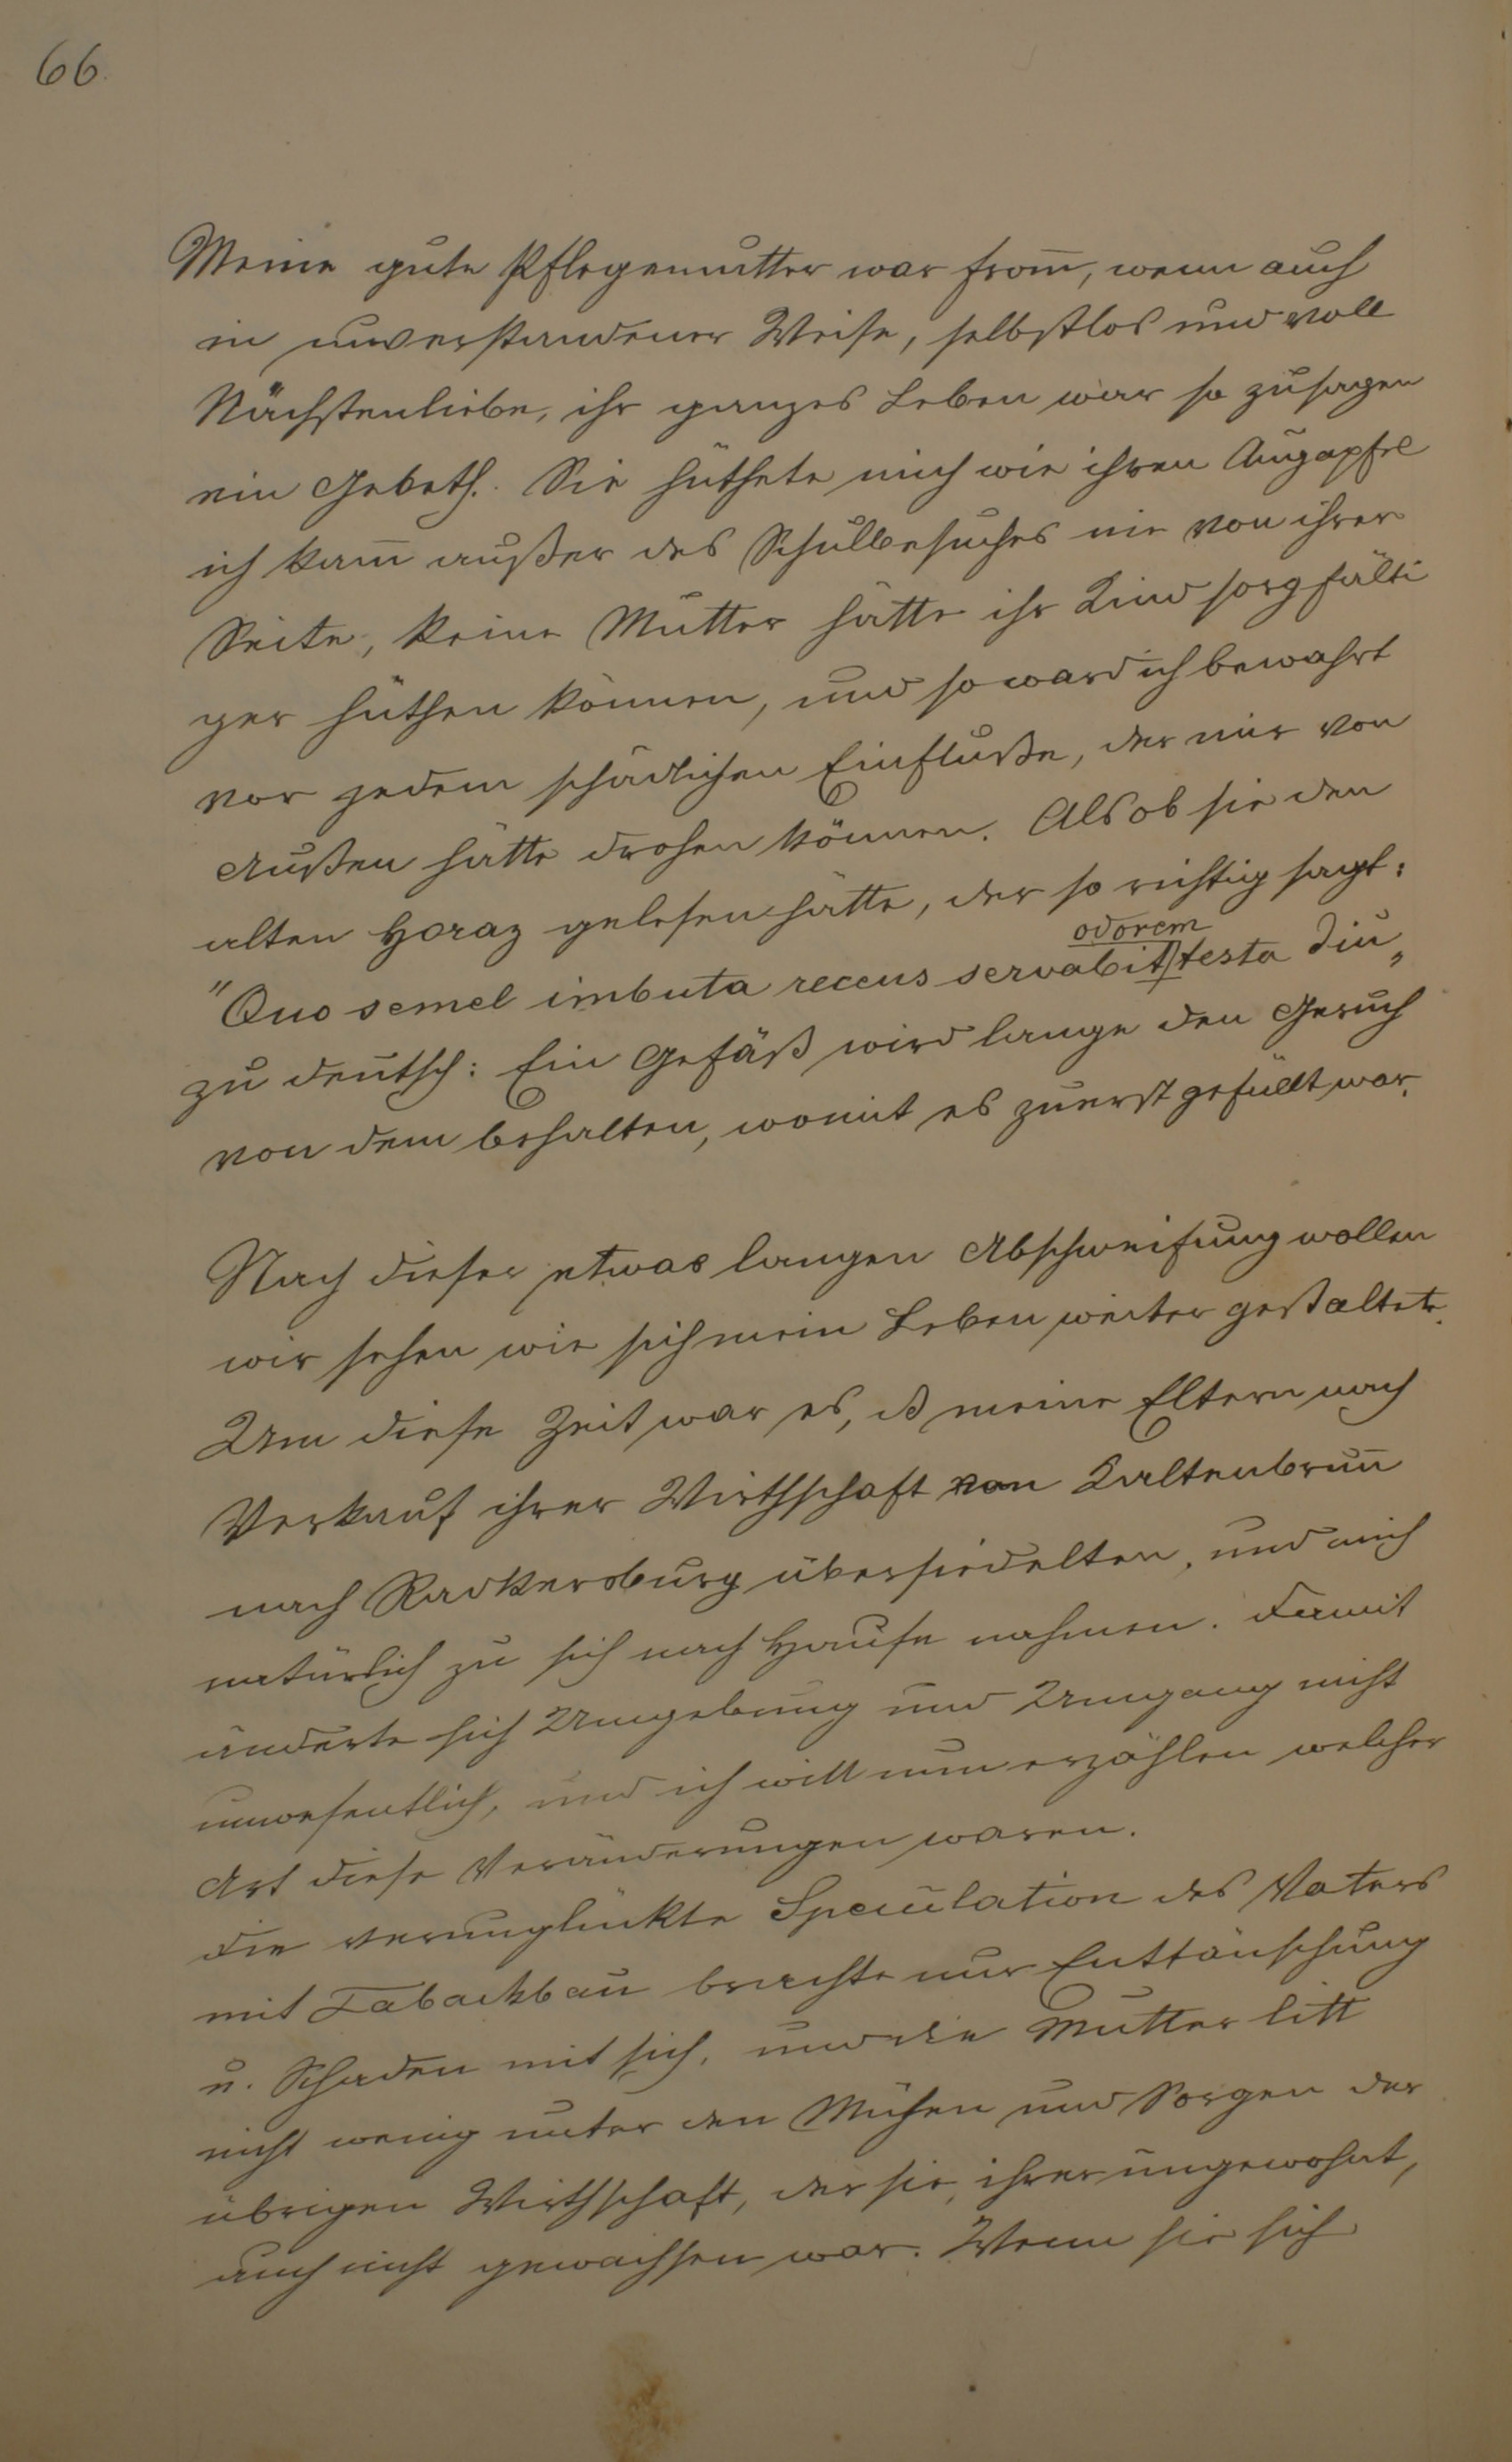 66.
Meine gute Pflegemutter war from̄, wenn auch
in unverstandener Weise, selbstlos und voll
Nächstenliebe, ihr ganzes Leben war so zusagen
ein Gebeth. Sie hüthete mich wie ihren Augapfel
ich kam̄ außer des Schulbesuches nie von ihrer
Seite, keine Mutter hätte ihr Kind sorgfälti
ger hüthen können, und so ward ich bewahrt
vor jedem schädlichen Einfluße, der mir von
Außen hätte drohen können. Als ob sie den
alten Horaz gelesen hätte, der so richtig sagt:
odorem
"Quo semel imbuta recens servabit testa diu„
zu deutsch: Ein Gefäß wird lange den Geruch
von dem behalten, womit es zuerst gefüllt war.
Nach dieser etwas langen Abschweifung wollen
wir sehen wie sich mein Leben weiter gestaltete.
Um diese Zeit war es, dß meine Eltern nach
Verkauf ihrer Wirthschaft von Kaltenbrun̄
nach Radkersburg übersiedelten, und mich
natürlich zu sich nach Hause nahmen. Damit
änderte sich Umgebung und Umgang nicht
unwesentlich, und ich will nun erzählen welcher
Art diese Veränderungen waren.
Die verunglückte Speculation des Vaters
mit Tabackbau brachte nur Enttäuschung
u. Schaden mit sich, und die Mutter litt
nicht wenig unter den Mühen und Sorgen der
übrigen Wirthschaft, der sie, ihrer ungewohnt,
auch nicht gewachsen war. Wenn sie sich